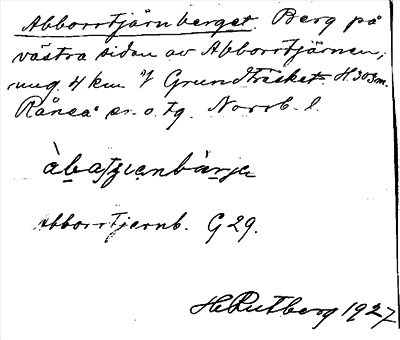 Abborrtjärnberget. Berg på
västra sidan av Abborrtjärnen,
ung. 4 km. V Grundträsket. H 303m.
Råneå sn. o. tg. Norrb. l.
àbatʃenbärjə
Abborrtjernb. G 29.
H. Rutberg 1927